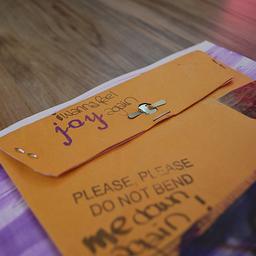 i wanna feel
joy again
PLEASE, PLEASE
DO NOT BEND
me down
again!